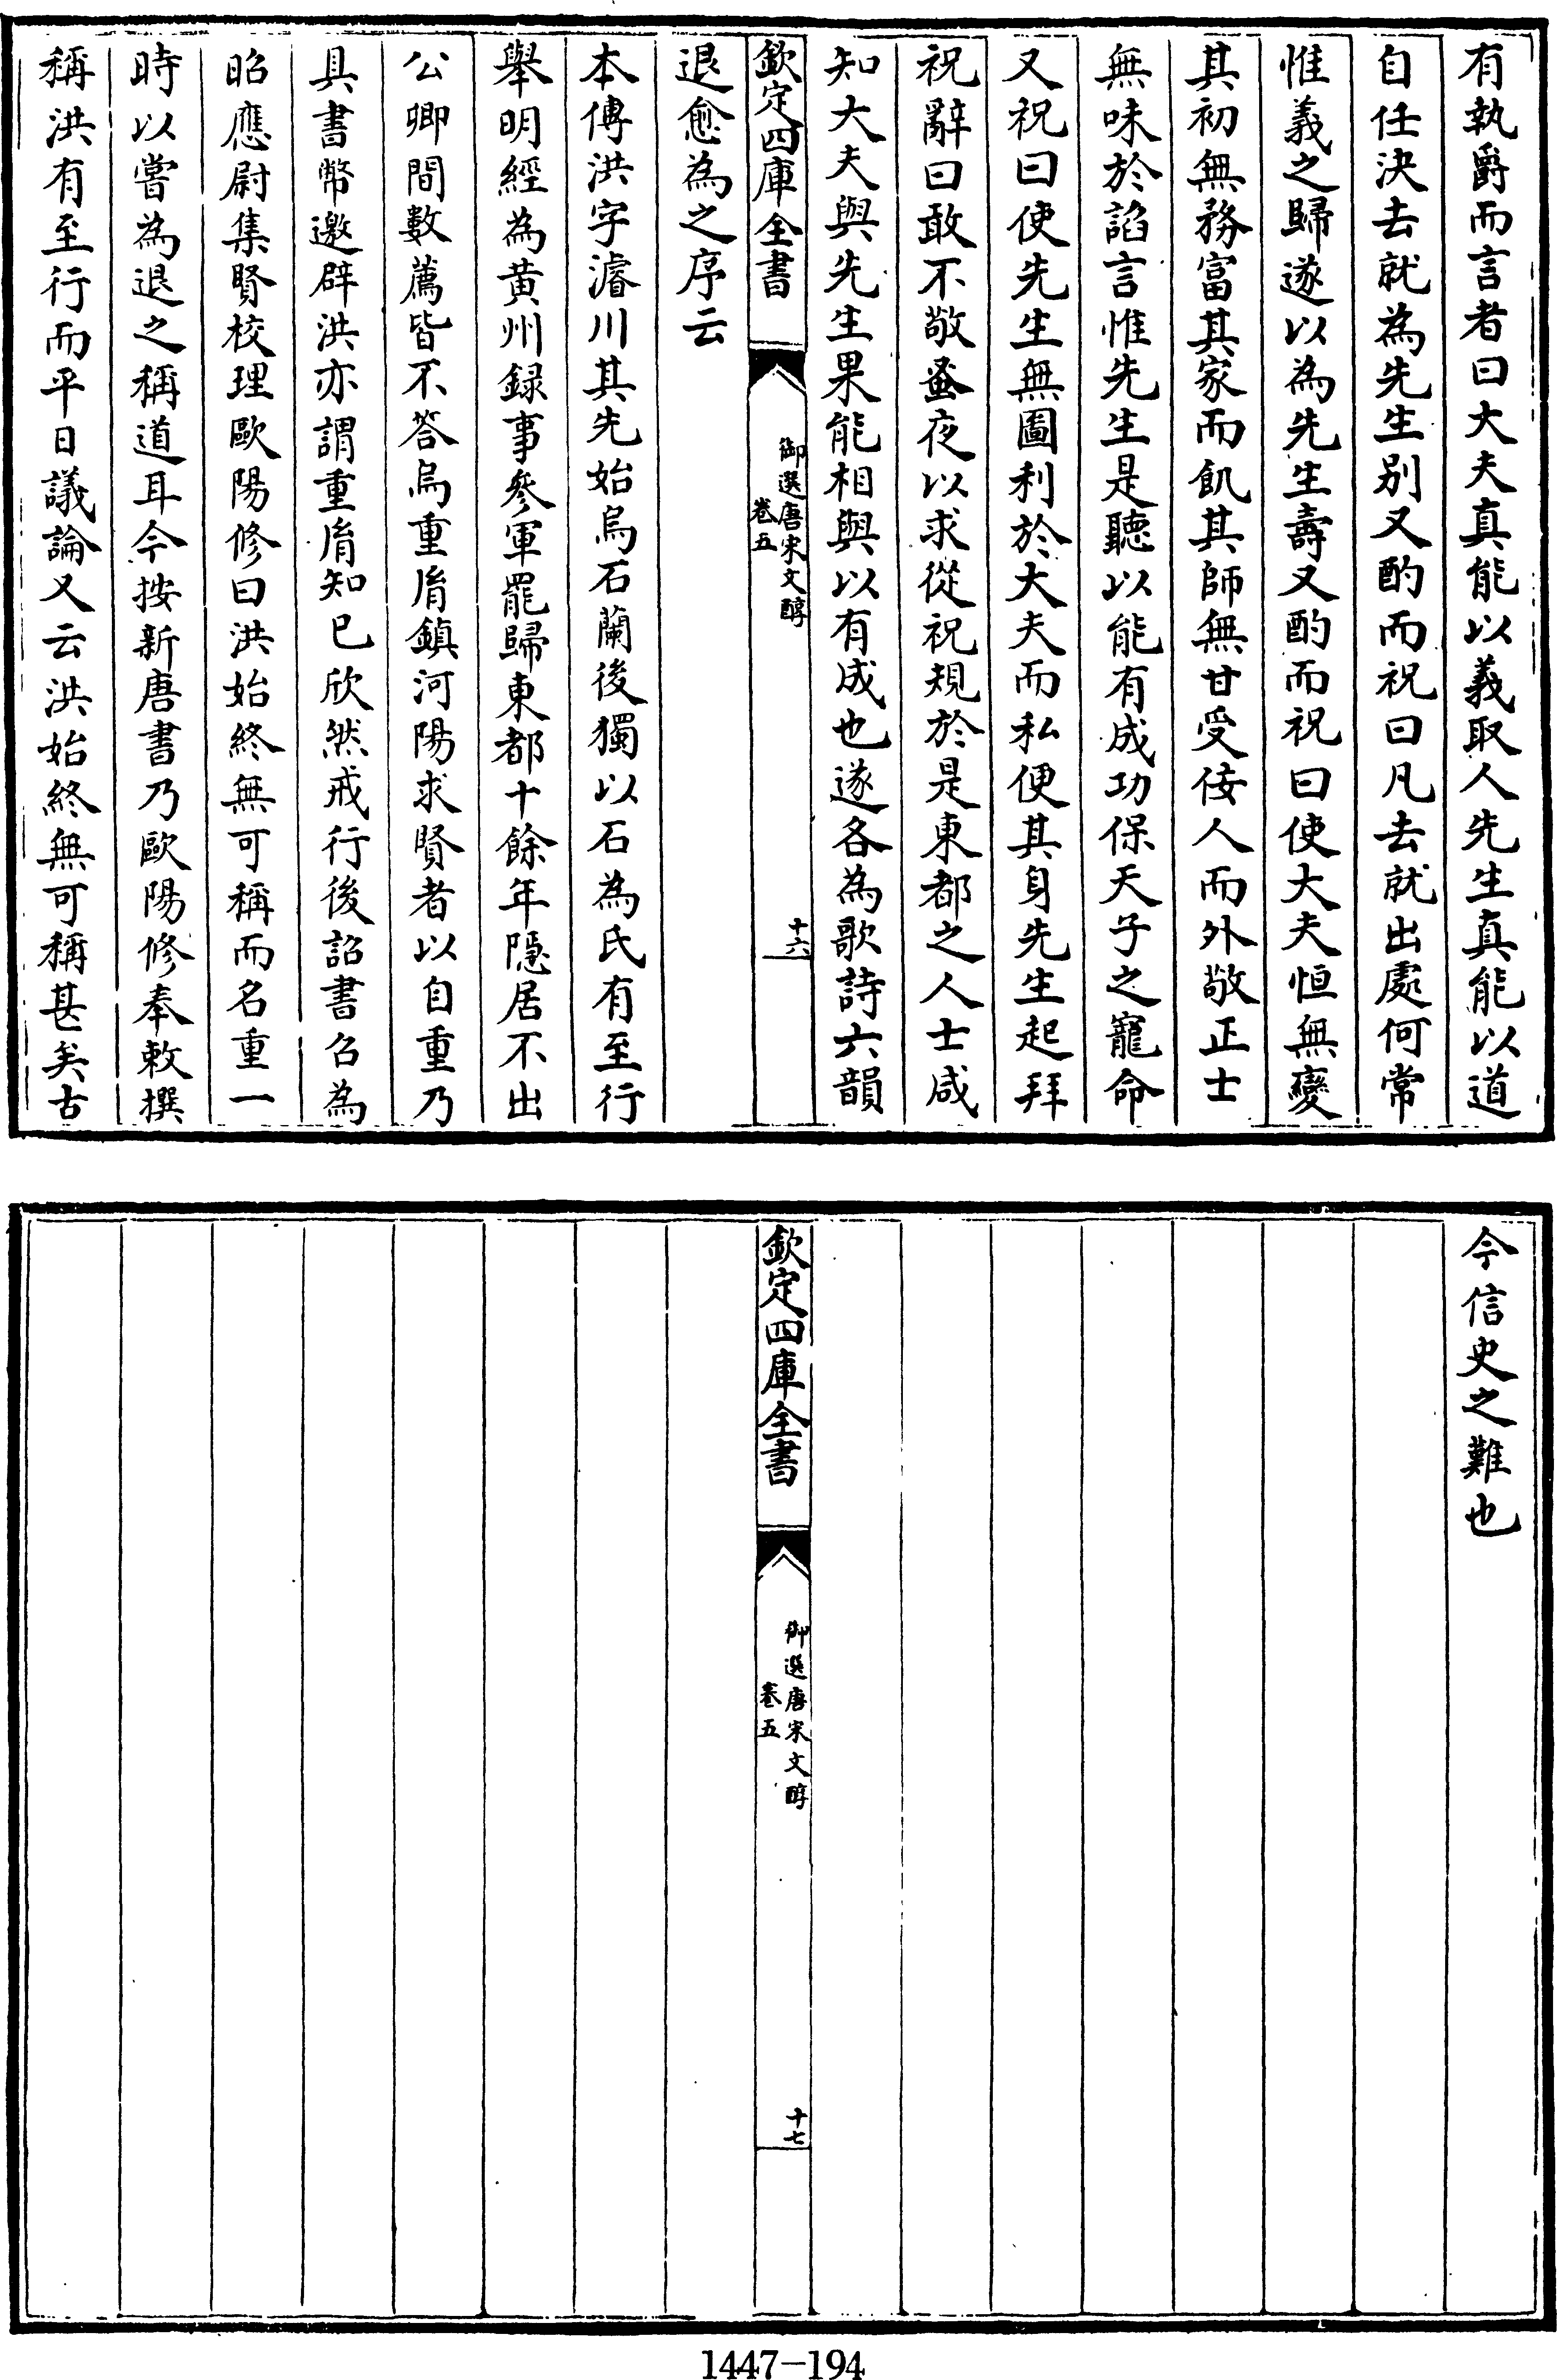 有執爵而言者曰大夫真能以義取人先生真能以道
自任決去就為先生别又酌而祝曰凡去就出處何常
惟義之歸遂以為先生壽又酌而祝曰使大夫恒無變
其初無務富其家而飢其師無甘受佞人而外敬正士
無味於諂言惟先生是聽以能有成功保天子之寵命
又祝曰使先生無圖利於大夫而私便其身先生起拜
祝辭曰敢不敬蚤夜以求從祝規於是東都之人士咸
知大夫與先生果能相與以有成也遂各為歌詩六韻
欽定四庫全書
御選唐宋文醇
卷五
十六
退愈為之序云
本傳洪字濬川其先始烏石蘭後獨以石為氏有至行
舉明經為黄州録事參軍罷歸東都十餘年隱居不出
公卿間數薦皆不答烏重𦙍鎮河陽求賢者以自重乃
具書幣邀辟洪亦謂重𦙍知已欣然戒行後詔書召為
昭應尉集賢校理歐陽修曰洪始終無可稱而名重一
時以嘗為退之稱道耳今按新唐書乃歐陽修奉敕撰
稱洪有至行而平日議論又云洪始終無可稱甚矣古
今信史之難也
欽定四庫全書
御選唐宋文醇
卷五
十七
1447-194